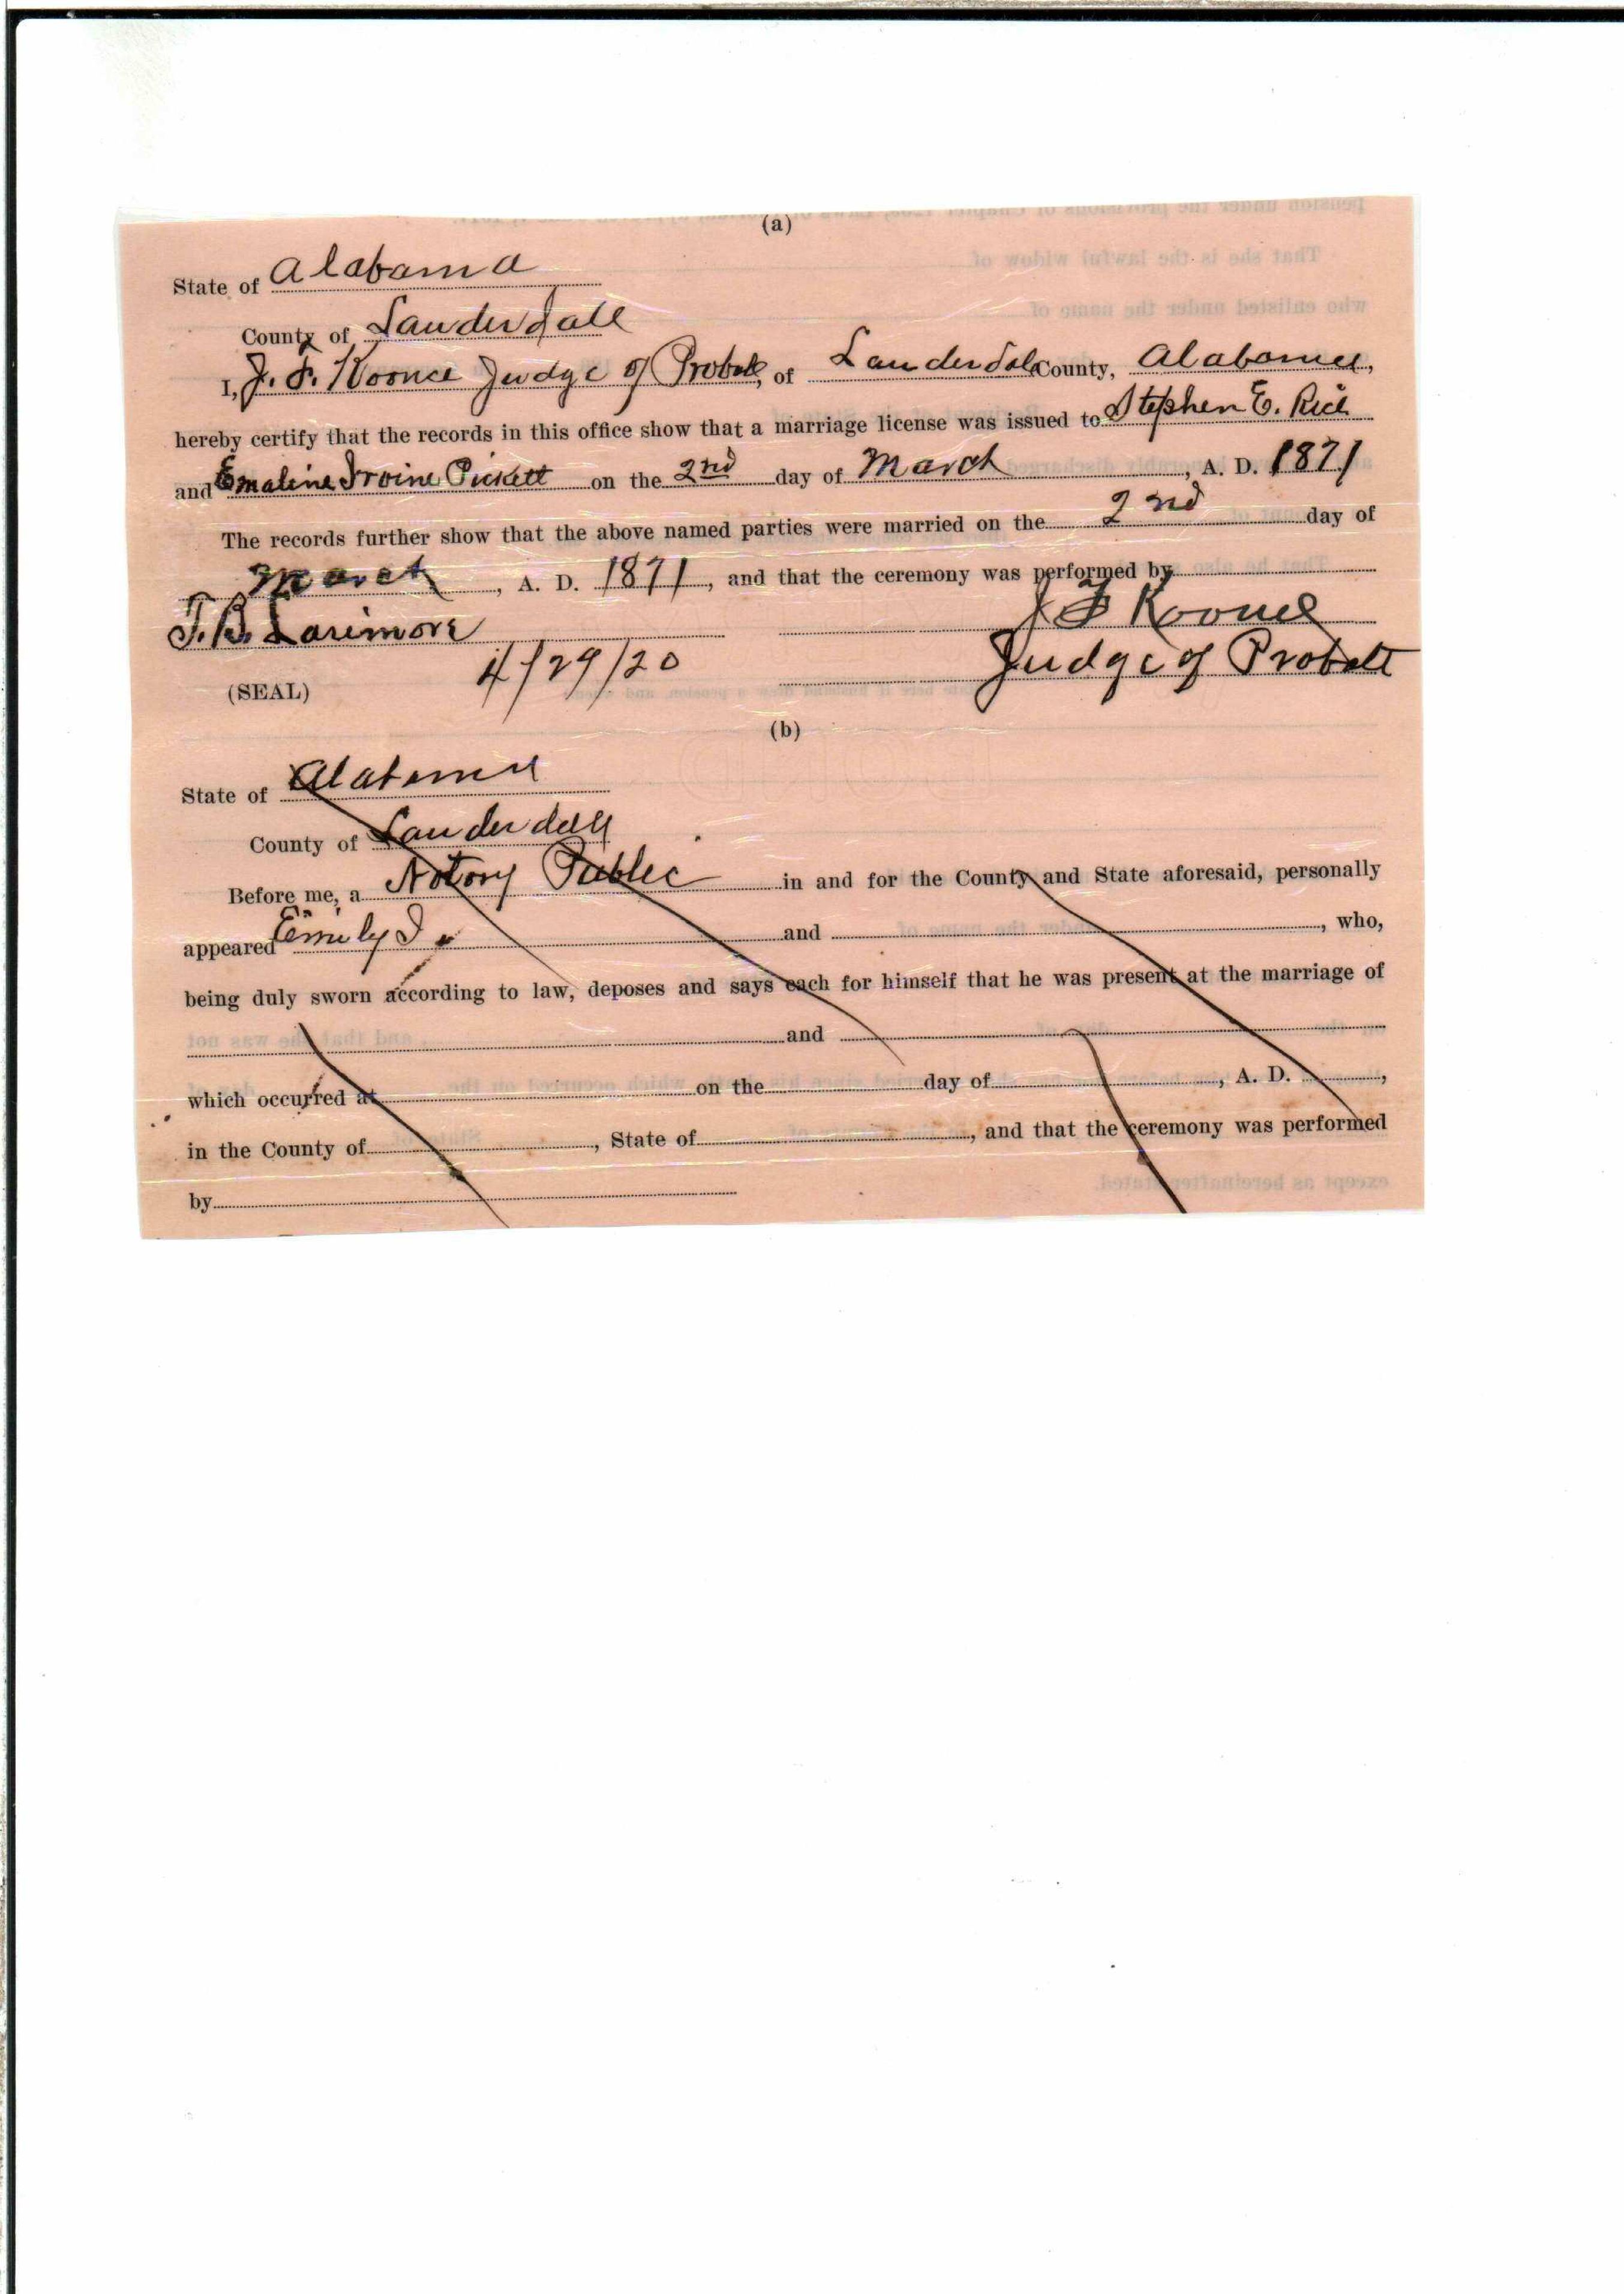 (a)
State of Alabama
County of Lauderdale
I, J. F. Koonce Judge of Probate, of Lauderdale County, Alabama,
hereby certify that the records in this office show that a marriage license was issued to Stephen E. Rice
and Emaline Irvine Pickett on the 2nd day of March, A. D. 1871
The records further show that the above named parties were married on the 2nd day of
March, A. D. 1871, and that the ceremony was performed by
T. B. Larimore J F Koonce
4/29/20 Judge of Probate
(SEAL)
(b)
State of Alabama
County of Lauderdale
Before me, a Notory Public in and for the County and State aforesaid, personally
appeared Emily I. and , who,
being duly sworn according to law, deposes and says each for himself that he was present at the marriage of
and
which occurred at on the day of , A. D. ,
in the County of , State of , and that the ceremony was performed
by